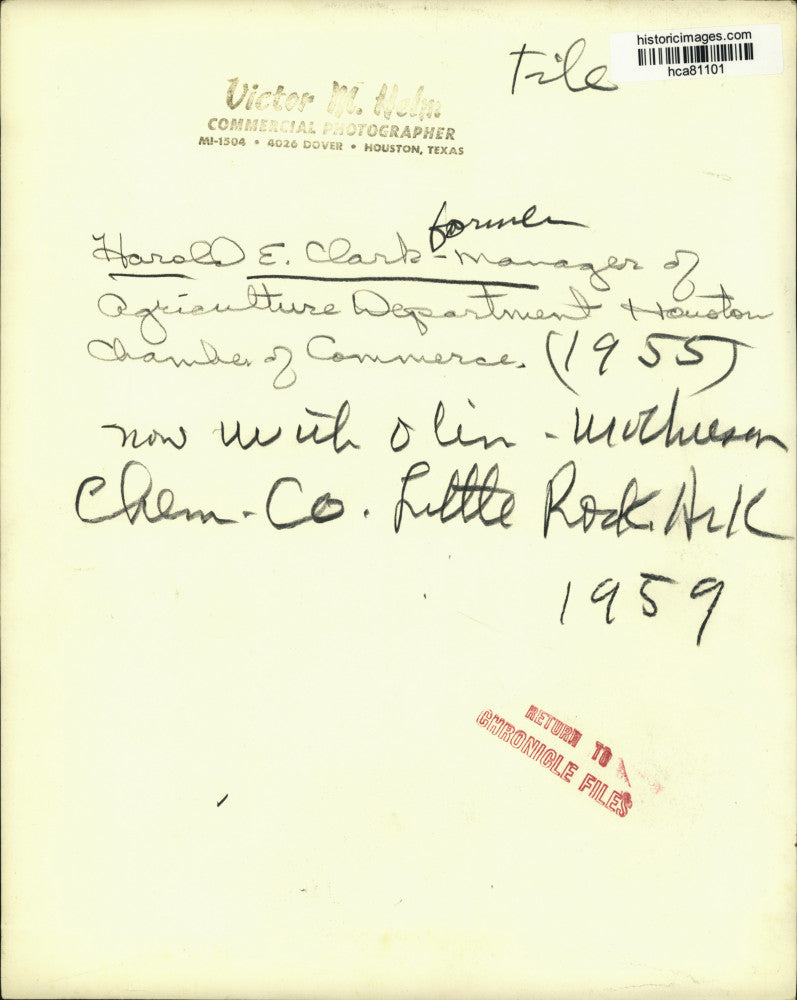 historicimages.com
hca81101
File
Victor M. Helm
COMMERCIAL PHOTOGRAPHER
MI-1504 • 4026 DOVER • HOUSTON, TEXAS
former
Harold E. Clark - manager of
Agriculture Department Houston
Chamber of Commerce. (1955)
now with Olin - Mathieson
Chem - Co. Little Rock Ark
1959
RETURN TO
CHRONICLE FILES